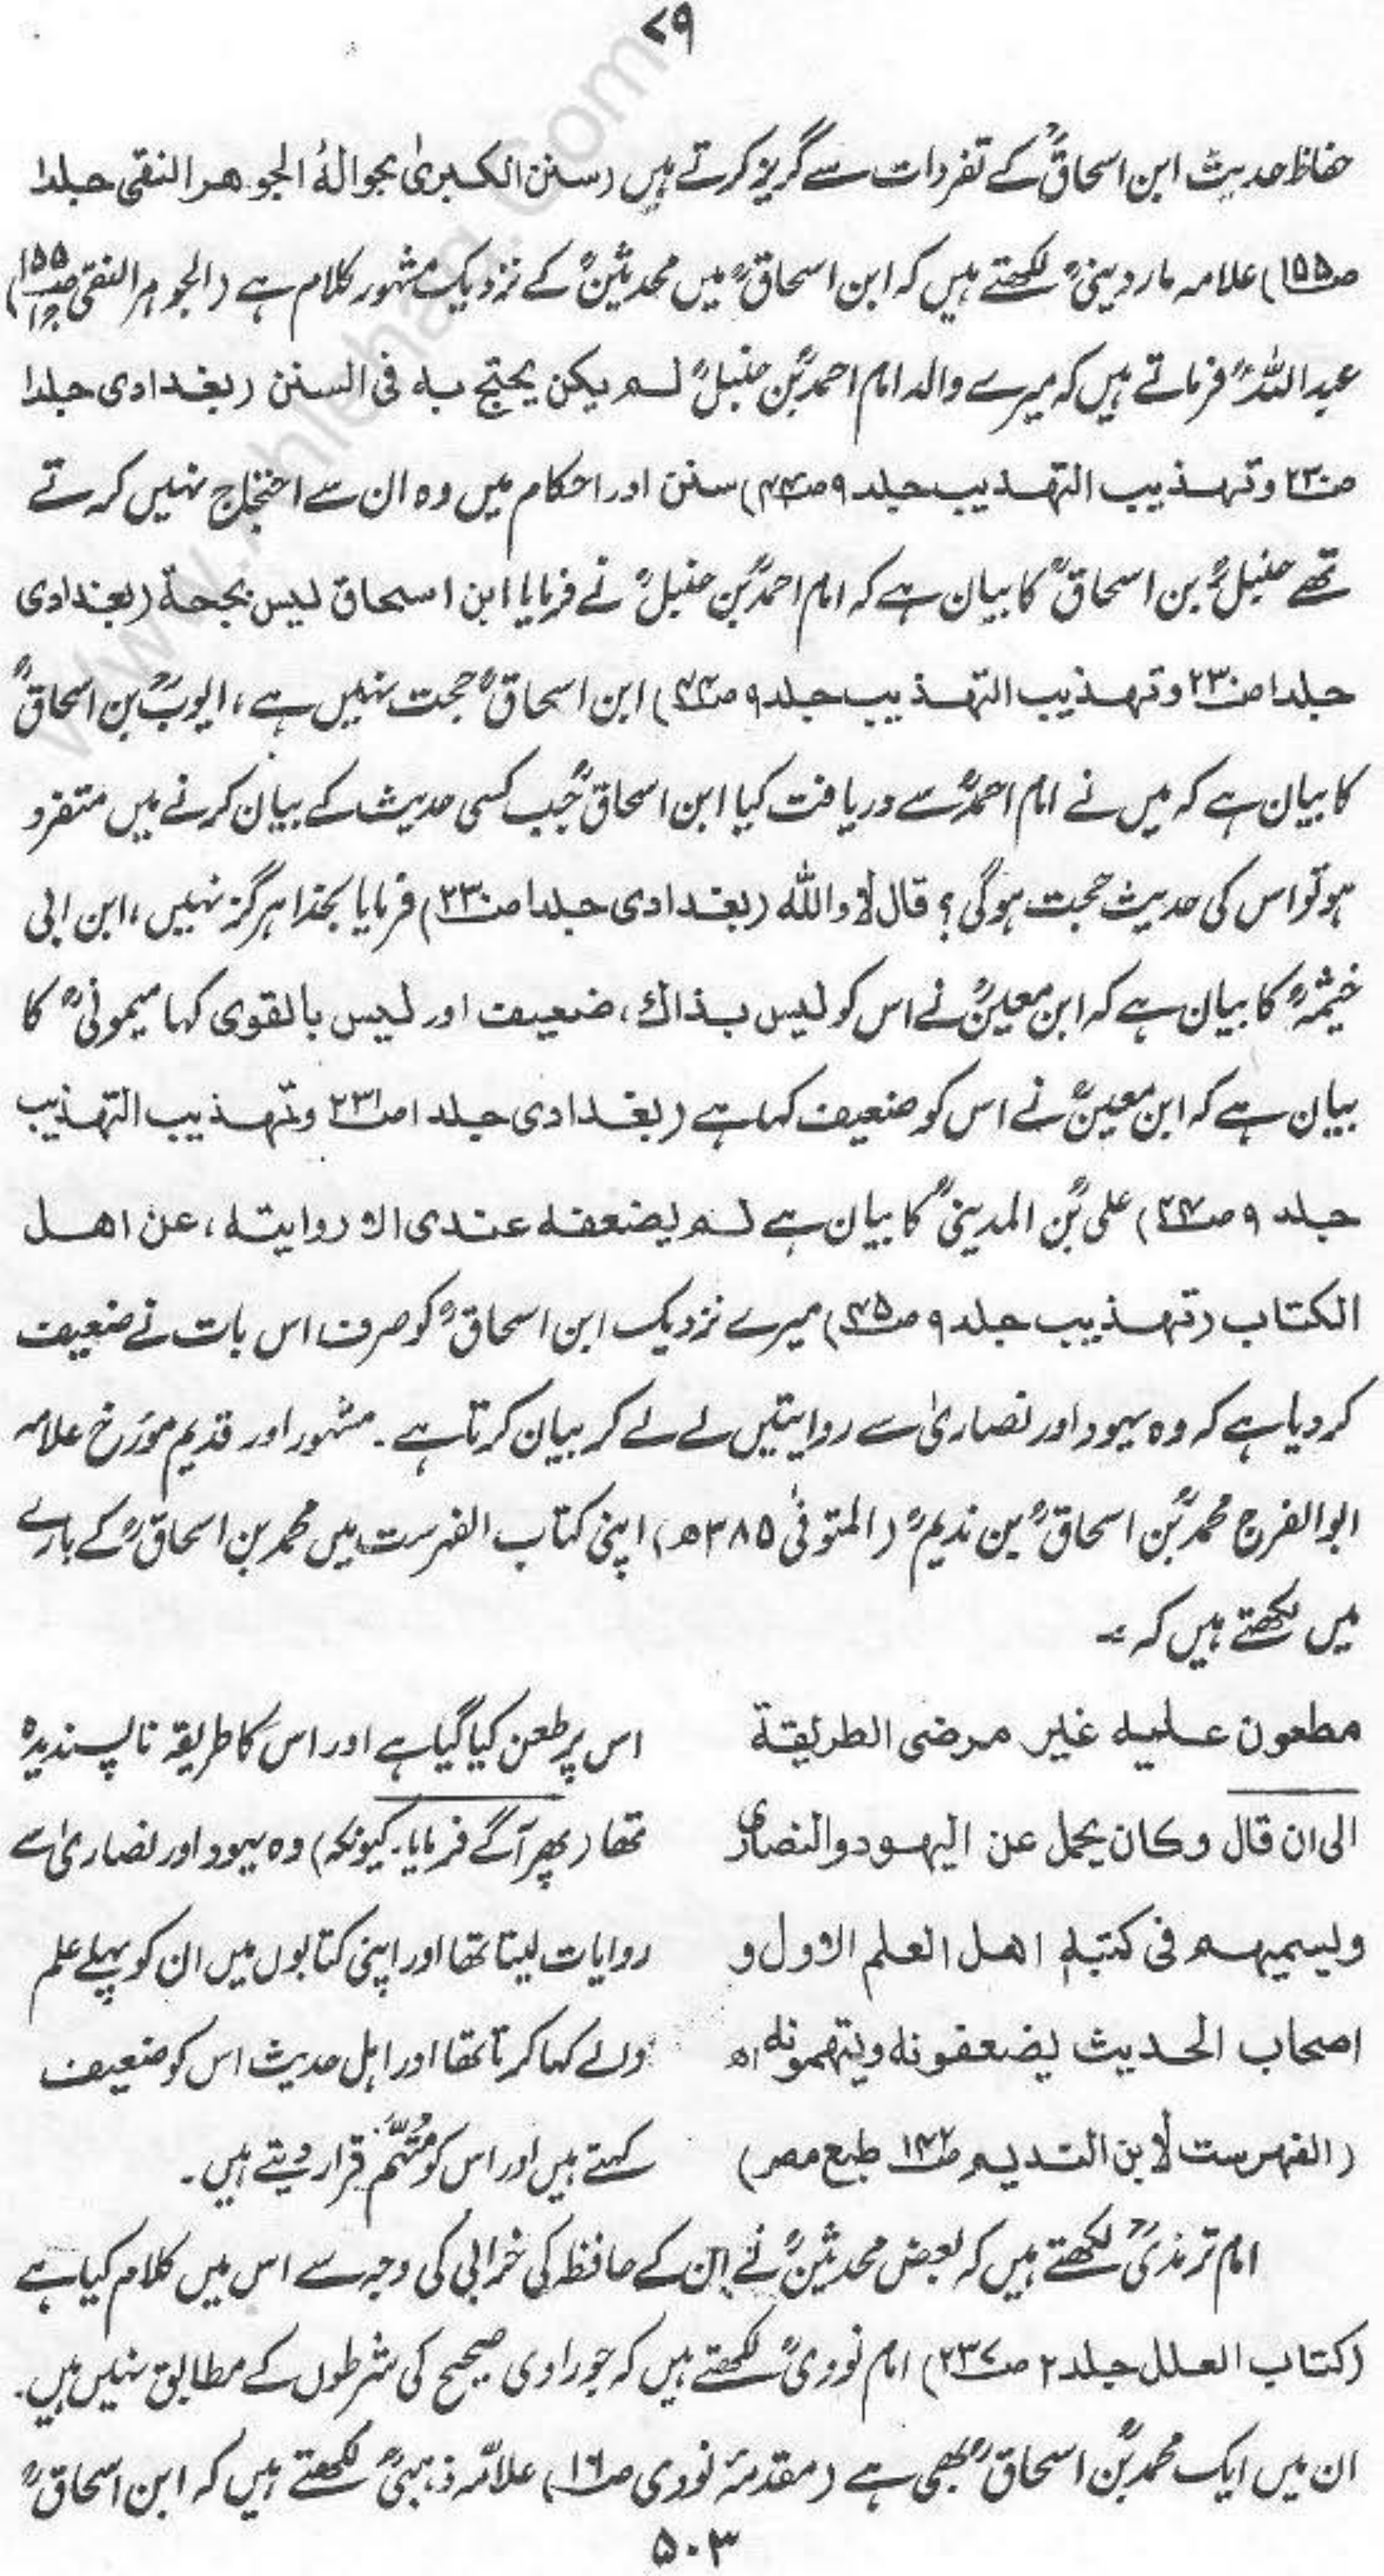 ۷۹
حفاظ حدیث ابن اسحاقؒ کے تفردات سے گریز کرتے ہیں (سنن الکبریٰ بحوالۂ الجوهر النقی جلد۱
ص۱۵۵) علامہ ماردینیؒ لکھتے ہیں کہ ابن اسحاقؒ میں محدثینؒ کے نزدیک مشہور کلام ہے (الجوہر النقی ص۱۵۵ ج۱)
عبداللہؒ فرماتے ہیں کہ میرے والد امام احمدؒ بن حنبلؒ لم یکن یحتج به فی السنن (بغدادی جلد۱
ص۲۳۰ وتهذیب التهذیب جلد۹ ص۴۴) سنن اور احکام میں وہ ان سے احتجاج نہیں کرتے
تھے حنبلؒ بن اسحاقؒ کا بیان ہے کہ امام احمدؒ بن حنبلؒ نے فرمایا ابن اسحاق لیس بحجة (بغدادی
جلد۱ ص۲۳۰ وتهذیب التهذیب جلد۹ ص۴۴) ابن اسحاقؒ حجت نہیں ہے، ایوبؒ بن اسحاقؒ
کا بیان ہے کہ میں نے امام احمدؒ سے دریافت کیا ابن اسحاقؒ جب کسی حدیث کے بیان کرنے میں متفرد
ہو تو اس کی حدیث حجت ہوگی؟ قال لا والله (بغدادی جلد۱ ص۲۳۰) فرمایا بخدا ہرگز نہیں، ابن ابی
خیثمہؒ کا بیان ہے کہ ابن معینؒ نے اس کو لیس بذاك، ضعیف اور لیس بالقوی کہا میمونیؒ کا
بیان ہے کہ ابن معینؒ نے اس کو ضعیف کہا ہے (بغدادی جلد۱ ص۲۳۱ وتهذیب التهذیب
جلد ۹ ص۴۴) علیؒ بن المدینیؒ کا بیان ہے لم یضعفه عندی الا روایته، عن اهل
الکتاب (تهذیب جلد۹ ص۴۵) میرے نزدیک ابن اسحاقؒ کو صرف اس بات نے ضعیف
کر دیا ہے کہ وہ یہود اور نصاریٰ سے روایتیں لے لے کر بیان کرتا ہے۔ مشہور اور قدیم مؤرخ علامہ
ابوالفرج محمدؒ بن اسحاقؒ بن ندیمؒ (المتوفیٰ ۳۸۵ھ) اپنی کتاب الفہرست میں محمد بن اسحاقؒ کے بارے
میں لکھتے ہیں کہ :-
مطعون علیه غیر مرضی الطریقة
الی ان قال وکان یحمل عن الیهود والنصاریٰ
ویسمیهم فی کتبه اهل العلم الاول و
اصحاب الحدیث یضعفونه ویتهمونه اه
(الفهرست لابن الندیم ص۱۴۲ طبع مصر)
اس پر طعن کیا گیا ہے اور اس کا طریقہ ناپسندیدہ
تھا (پھر آگے فرمایا۔ کیونکہ) وہ یہود اور نصاریٰ سے
روایات لیتا تھا اور اپنی کتابوں میں ان کو پہلے علم
والے کہا کرتا تھا اور اہل حدیث اس کو ضعیف
کہتے ہیں اور اس کو مُتَّہَم قرار دیتے ہیں۔
امام ترمذیؒ لکھتے ہیں کہ بعض محدثینؒ نے ان کے حافظہ کی خرابی کی وجہ سے اس میں کلام کیا ہے
(کتاب العلل جلد۲ ص۲۳۷) امام نوویؒ لکھتے ہیں کہ جو راوی صحیح کی شرطوں کے مطابق نہیں ہیں۔
ان میں ایک محمدؒ بن اسحاقؒ بھی ہے (مقدمۂ نووی ص۱۶) علامہ ذہبیؒ لکھتے ہیں کہ ابن اسحاقؒ
۵۰۳